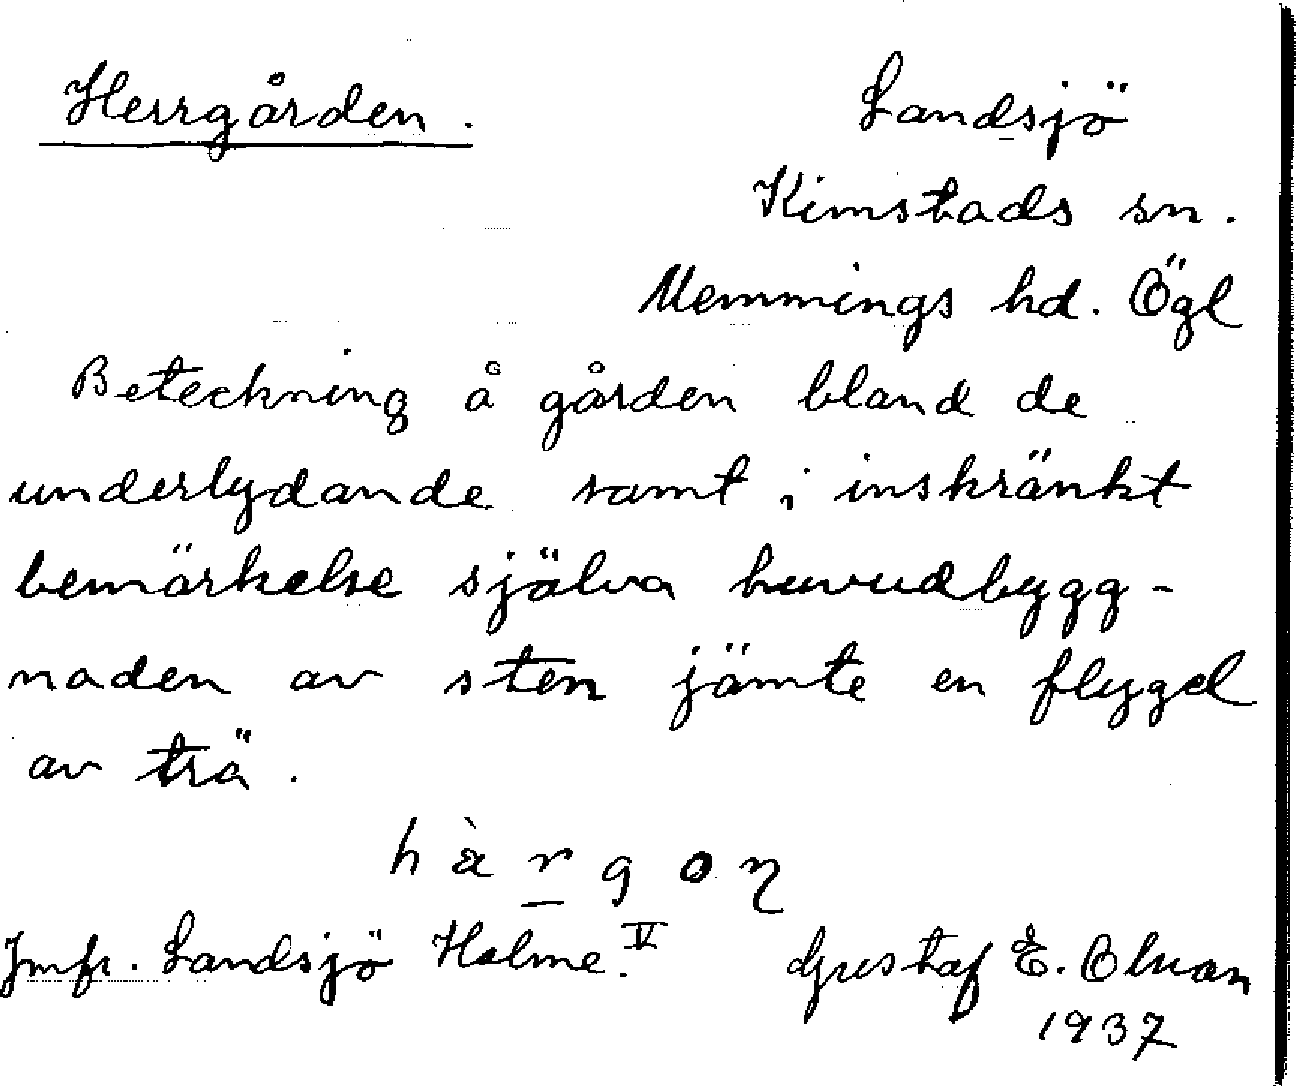 Herrgården.
Landsjö
Kimstads sn.
Memmings hd. Ögl
Beteckning å gården bland de
underlydande samt i inskränkt
bemärkelse själva huvudbygg-
naden av sten jämte en flygel
av trä.
Jmfr. Landsjö Holme. IV
Gustaf E.
1937